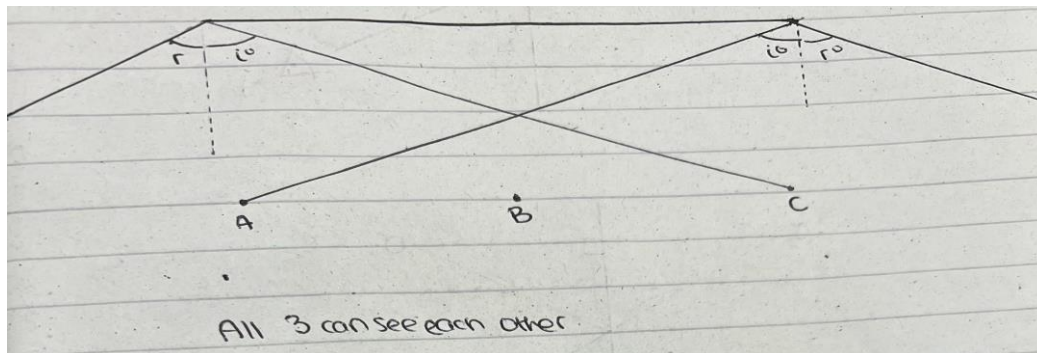 r i° i° r°
A B C
All 3 can see each other